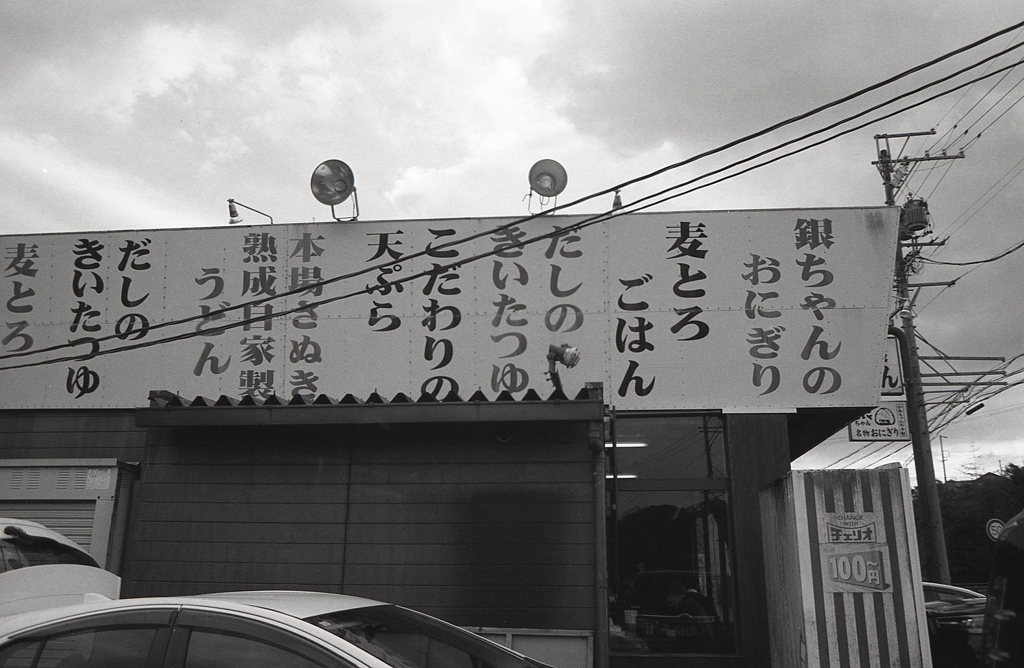 銀ちゃんの
おにぎり
麦とろ
ごはん
だしの
きいたつゆ
こだわりの
天ぷら
本場さぬき
熟成自家製
うどん
だしの
きいたつゆ
麦とろ
ん
ちゃん
名物おにぎり
CHANGE
WITH
チェリオ
100円~